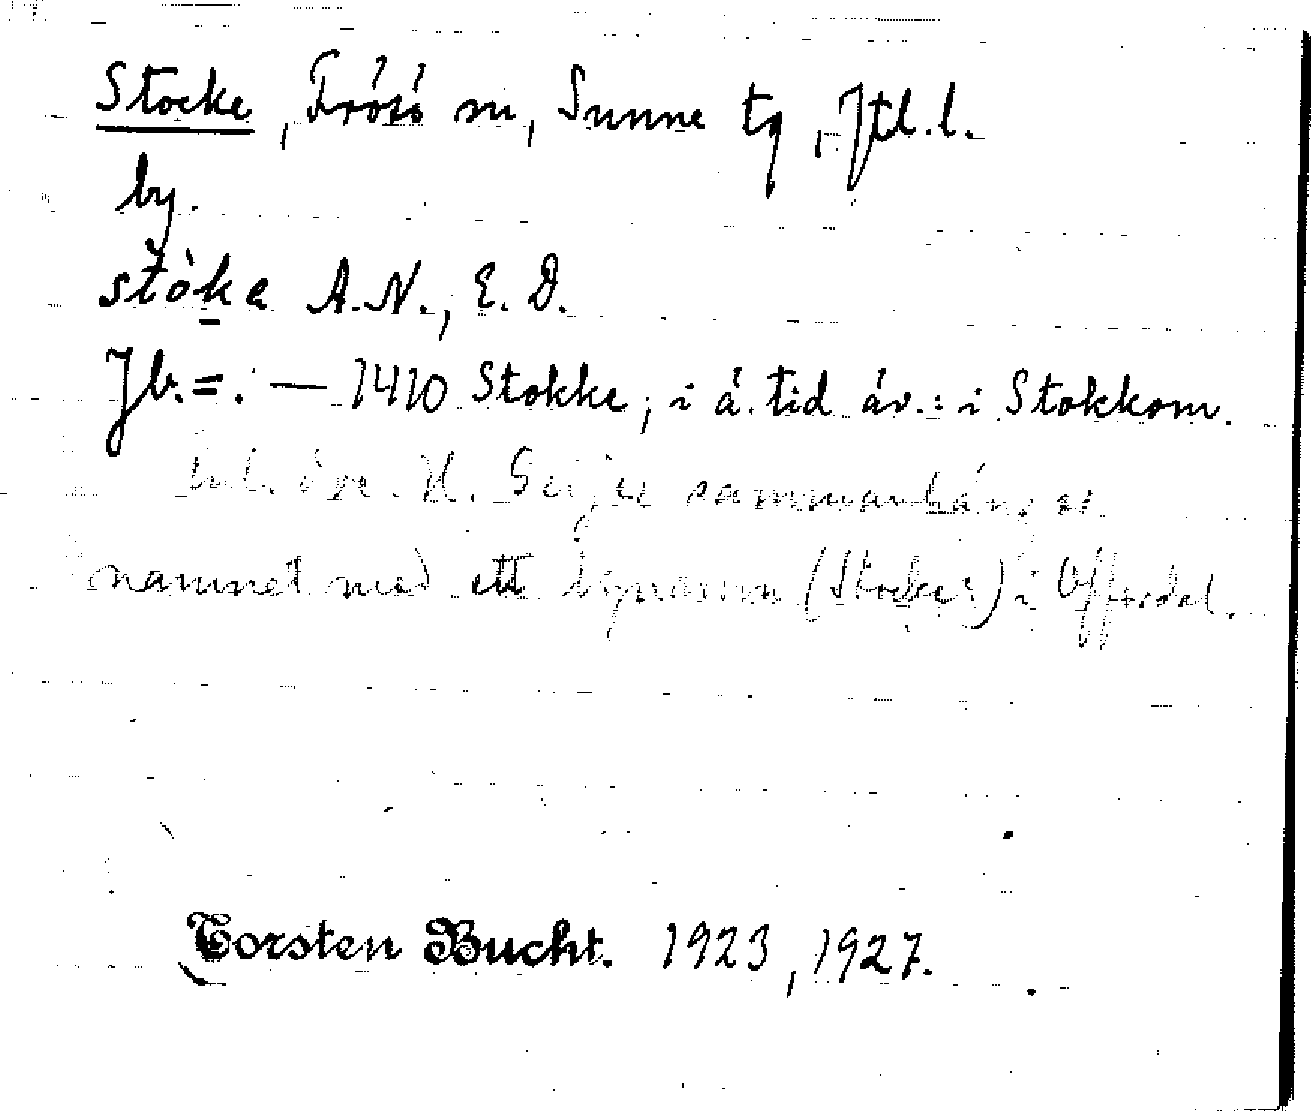 Stocke, Frösö sn, Sunne tg, Jtl. l.
by.
stòke A.N., E. D.
Jb. =. — 1410 Stokke, i á. tid áv.: i Stokkom.
Enl. H. Geijer sammanhänger
namnet med ett bynamn (Stocker) i Offerdal.
Torsten Bucht. 1923, 1927.